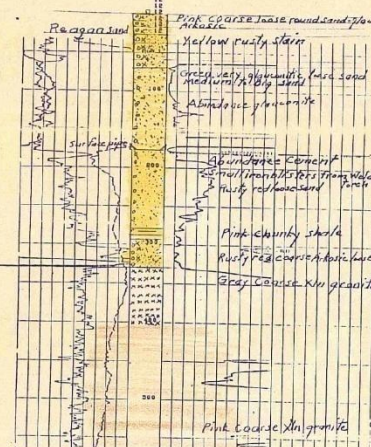 Pink Coarse loose round sand
Arkosic
Reagan sand
Yellow rusty stain
Green very glauconitic, loose sand
Medium to big sand
100
Abundance glauconite
Surface pipe
Abundance Cement
200
Small iron blisters from Weld
torch
Rusty red loose sand
Pink chunky shale
300
Rusty red coarse Arkosic loose
Grey Coarse Xln granite
500
Pink Coarse Xln granite